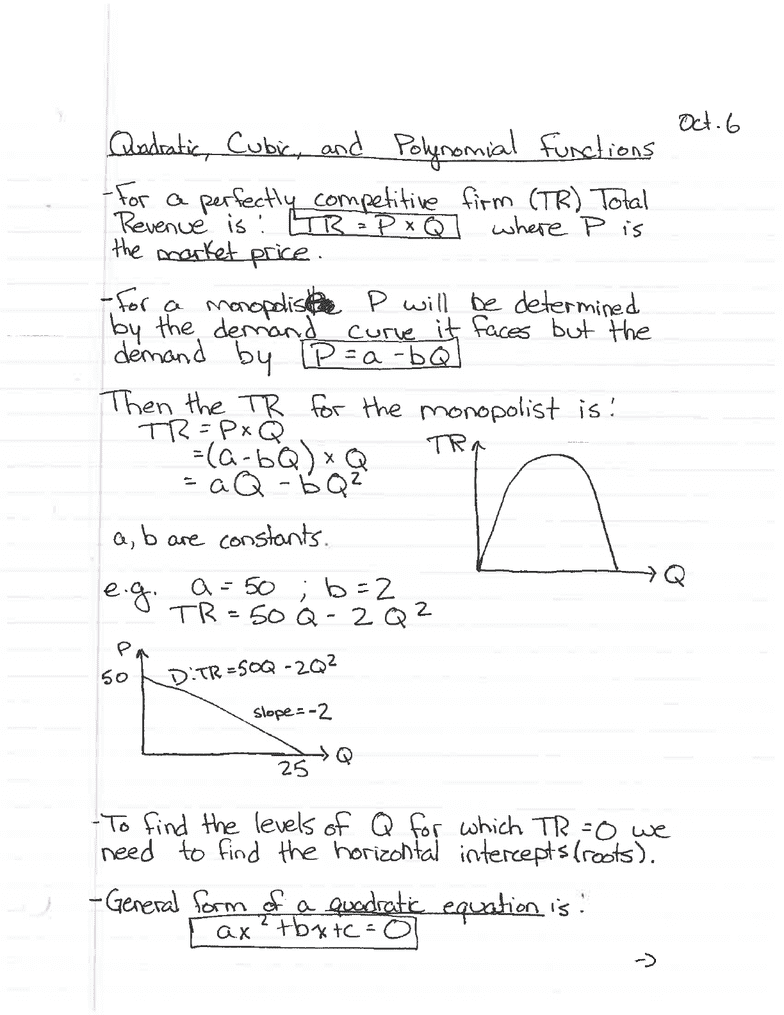 Oct. 6
Quadratic, Cubic, and Polynomial Functions
- For a perfectly competitive firm (TR) Total
Revenue is: TR = P x Q where P is
the market price.
- For a monopolist P will be determined
by the demand curve it faces but the
demand by P = a - bQ
Then the TR for the monopolist is:
TR = P x Q
= (a - bQ) x Q
= aQ - bQ²
TR
Q
a, b are constants.
e.g. a = 50 ; b = 2
TR = 50 Q - 2 Q²
P
50
D: TR = 50Q - 2Q²
slope = -2
Q
25
- To find the levels of Q for which TR = 0 we
need to find the horizontal intercepts (roots).
- General form of a quadratic equation is:
ax² + bx + c = 0
->